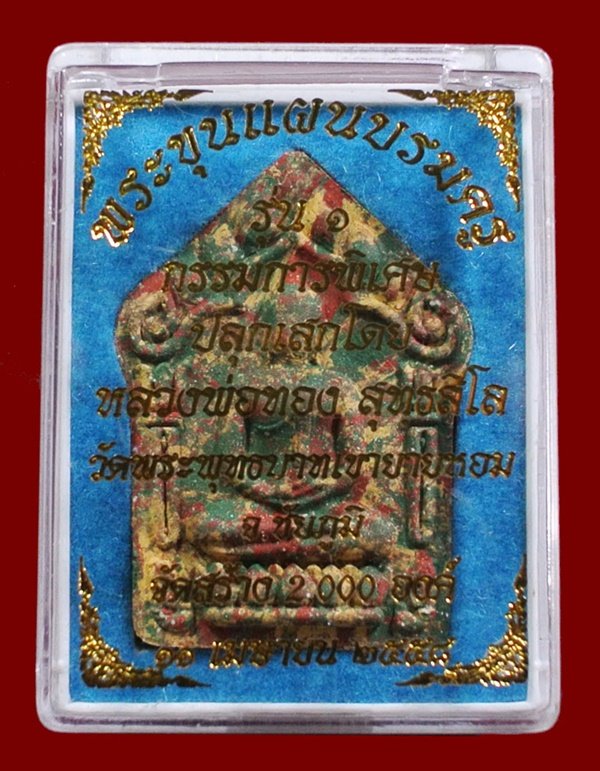 พระขุนแผนบรมครู
รุ่น ๑
กรรมการพิเศษ
ปลุกเสกโดย
หลวงพ่อทอง สุทธสีโล
วัดพระพุทธบาทเขายายหอม
จ.ชัยภูมิ
จัดสร้าง 2,000 องค์
เมษายน ๒๕๕๘